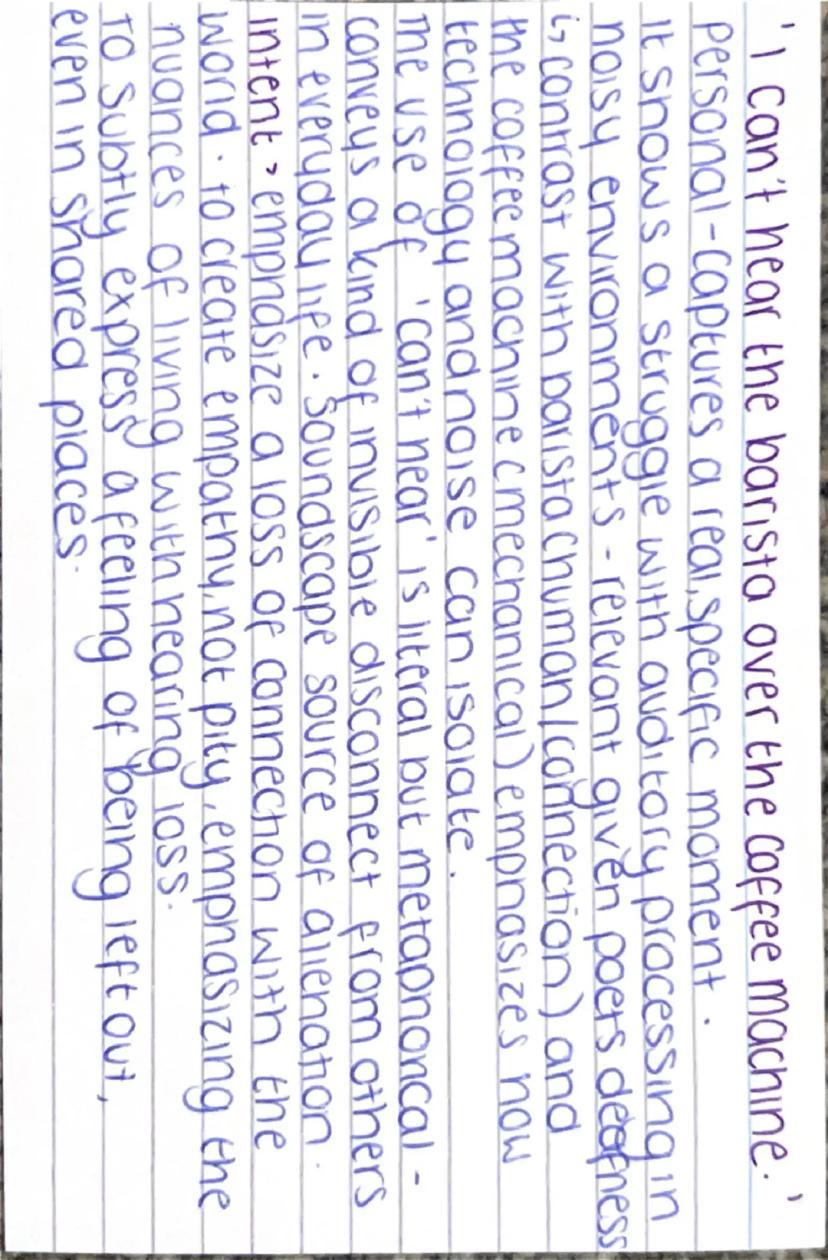 'I can't hear the barista over the coffee machine.'
personal - captures a real, specific moment.
It shows a struggle with auditory processing in
noisy environments - relevant given poets deafness
↳ contrast with barista (human/connection) and
the coffee machine (mechanical) emphasizes how
technology and noise can isolate.
The use of 'can't hear' is literal but metaphorical -
conveys a kind of invisible disconnect from others
in everyday life. Soundscape source of alienation.
Intent > emphasize a loss of connection with the
world. to create empathy, not pity, emphasizing the
nuances of living with hearing loss.
To subtly express a feeling of being left out,
even in shared places.